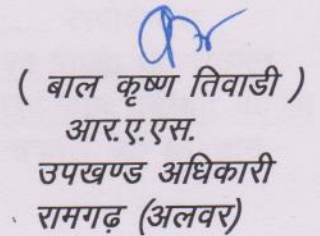 ( बाल कृष्ण तिवाडी )
आर.ए.एस.
उपखण्ड अधिकारी
रामगढ़ (अलवर)